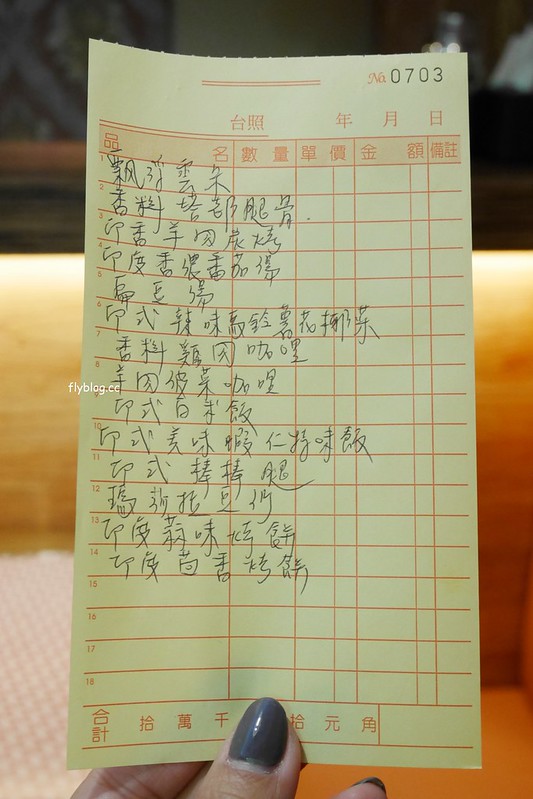 No. 0703
台照 年 月 日
品名 數量 單價 金額 備註
1 飄浮雲朵
2 香料塔都腿骨.
3 印香羊肉炭烤
4 印度香濃番茄湯
5 扁豆湯
6 印式辣味馬鈴薯花椰菜
7 香料雞肉咖哩
8 羊肉菠菜咖哩
9 印式白米飯
10 印式美味蝦仁特味飯
11 印式棒棒腿
12 瑪莎拉
13 印度蒜味烤餅
14 印度茴香烤餅
15
16
17
18
合計 拾 萬 千 拾 元 角
flyblog.cc